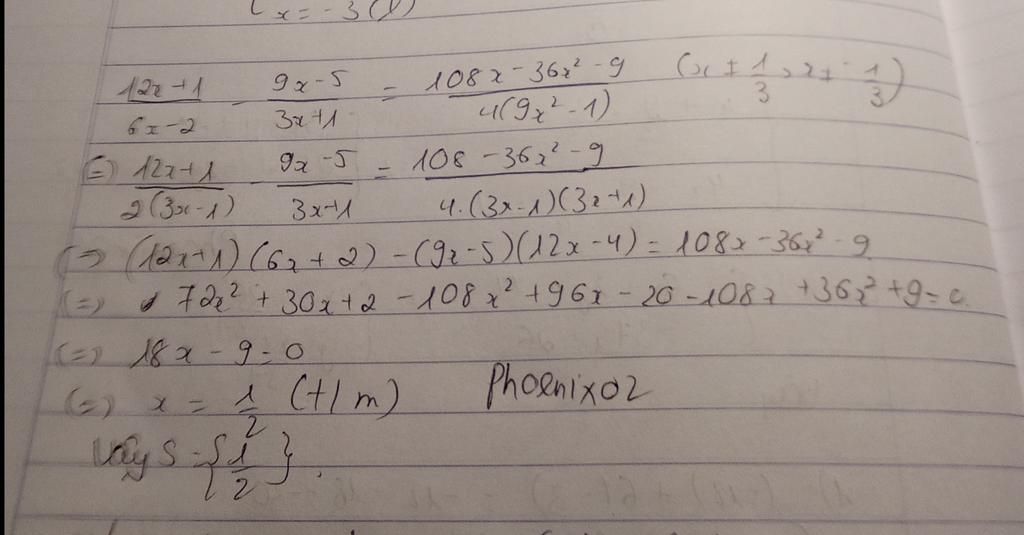 x = -3 (l)
\frac{12x+1}{6x-2} - \frac{9x-5}{3x+1} = \frac{108x-36x²-9}{4(9x²-1)} (x ≠ \frac{1}{3}, x ≠ -\frac{1}{3})
(=) \frac{12x+1}{2(3x-1)} - \frac{9x-5}{3x+1} = \frac{108-36x²-9}{4.(3x-1)(3x+1)}
(=) (12x+1)(6x+2) - (9x-5)(12x-4) = 108x-36x²-9
(=) 72x² + 30x + 2 - 108x² + 96x - 20 - 108x + 36x² + 9 = 0
(=) 18x - 9 = 0
(=) x = \frac{1}{2} (t/m) Phoenix02
Vậy S = {\frac{1}{2}}.